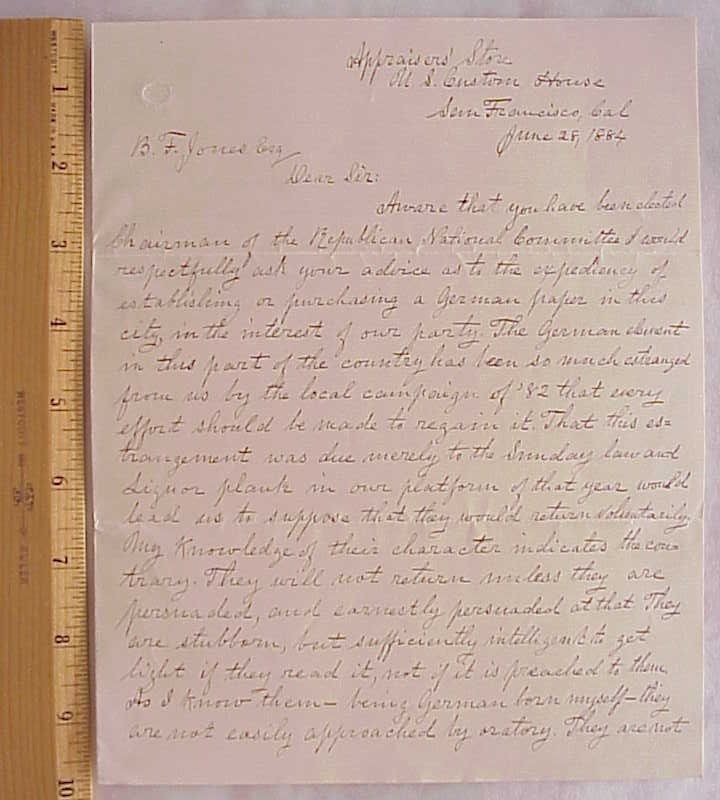 Appraisers' Store
U. S. Custom House
San Francisco, Cal
June 28, 1884
B. F. Jones Esq
Dear Sir:
Aware that you have been elected
Chairman of the Republican National Committee I would
respectfully ask your advice as to the expediency of
establishing or purchasing a German paper in this
city, in the interest of our party. The German element
in this part of the country has been so much estranged
from us by the local campaign of '82 that every
effort should be made to regain it. That this es=
trangement was due merely to the Sunday law and
Liquor plank in our platform of that year would
lead us to suppose that they would return voluntarily.
My Knowledge of their character indicates the con=
trary. They will not return unless they are
persuaded, and earnestly persuaded at that They
are stubborn, but sufficiently intelligent to get
light if they read it, not if it is preached to them
As I Know them — being German born myself — they
are not easily approached by oratory. They are not
1
2
3
4
5
6
7
8
9
10
WESTCOTT
RULER